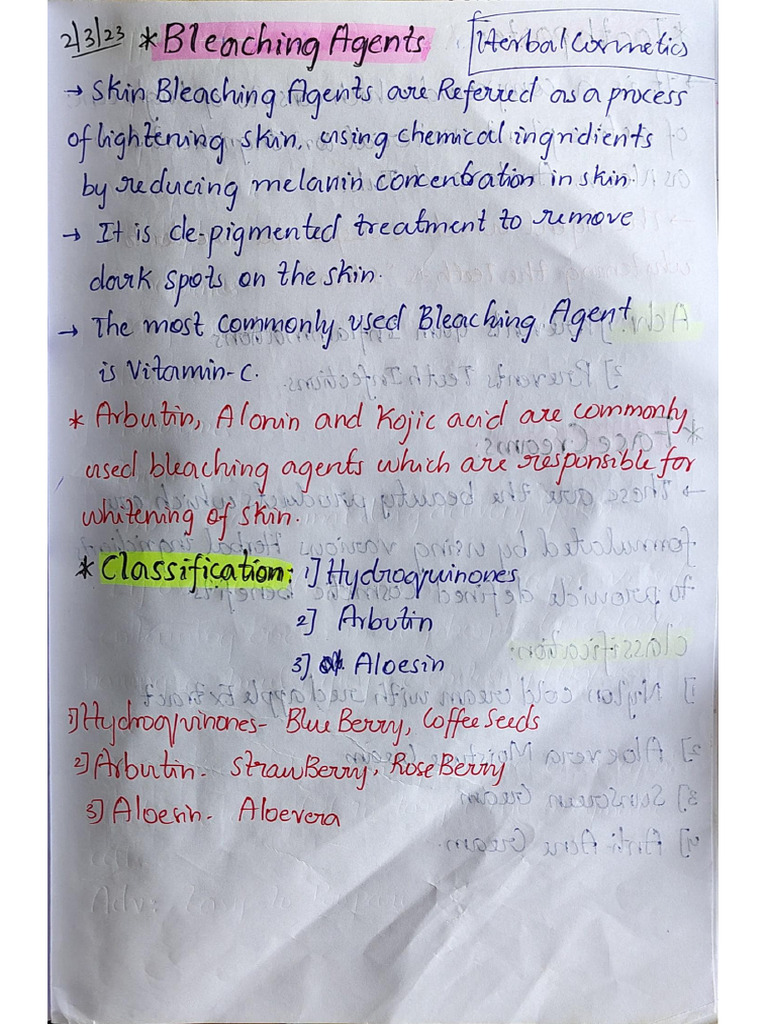 2/3/23 * Bleaching Agents Herbal Cosmetics
→ Skin Bleaching Agents are Referred as a process
of lightening skin, using chemical ingridients
by reducing melanin concentration in skin.
→ It is de-pigmented treatment to remove
dark spots on the skin.
→ The most commonly used Bleaching Agent
is Vitamin-C.
* Arbutin, Alonin and Kojic acid are commonly
used bleaching agents which are responsible for
whitening of skin.
* Classification: 1] Hydroquinones
2] Arbutin
3] Aloesin
1] Hydroquinones - Blue Berry, Coffee Seeds
2] Arbutin - Straw Berry, Rose Berry
3] Aloesin - Aloevera